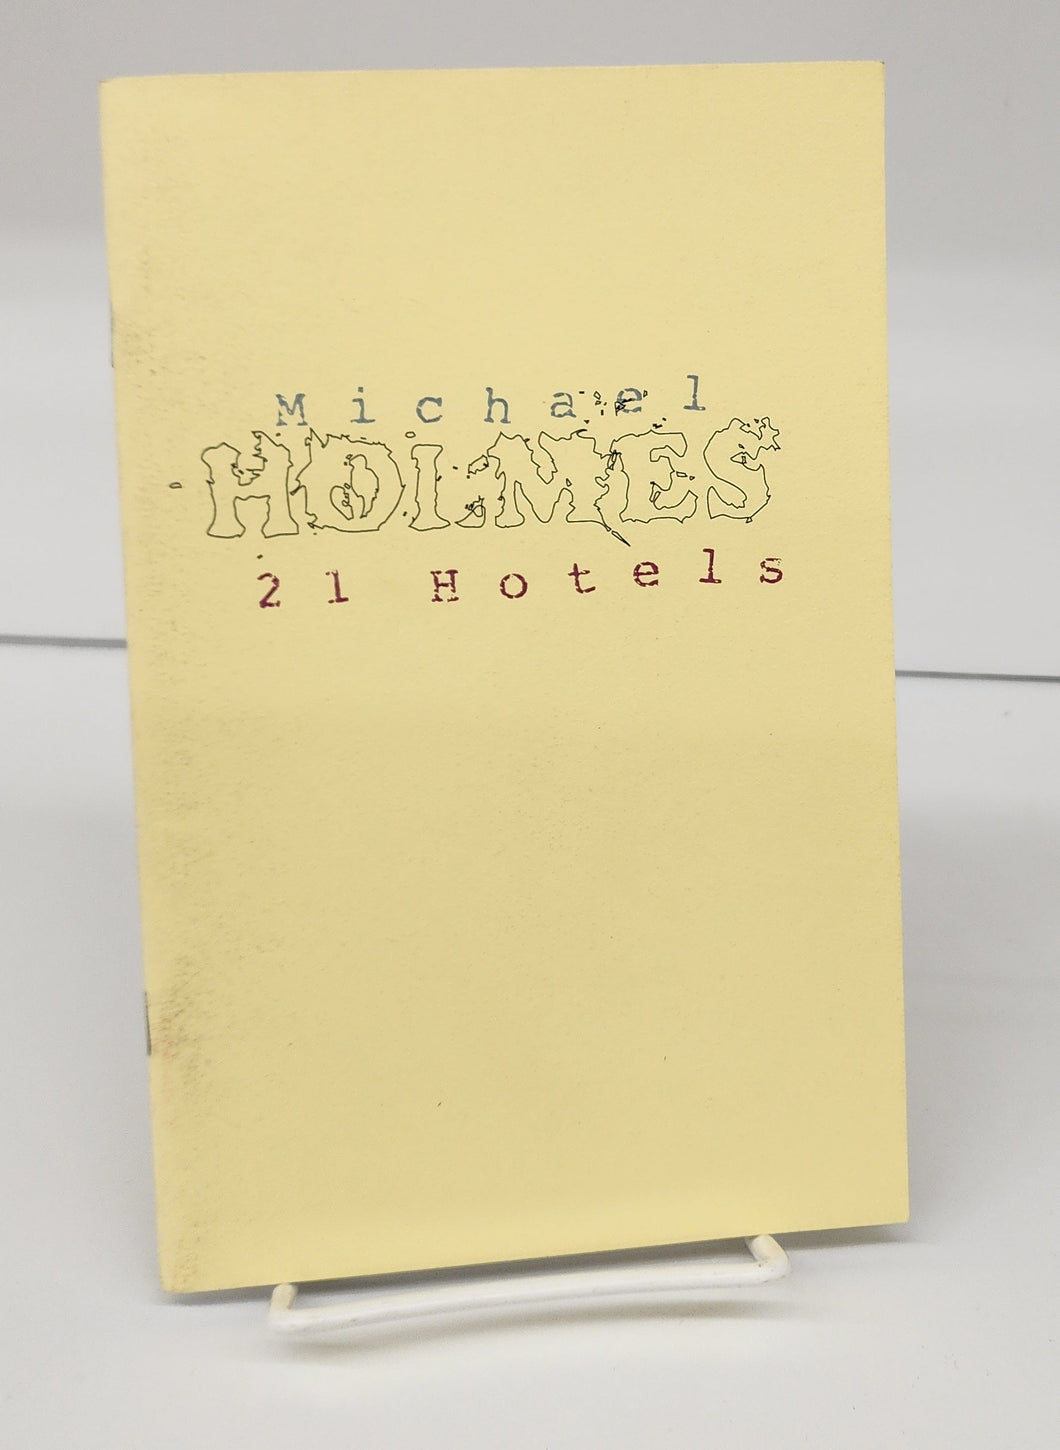 Michael
HOLMES
21 Hotels